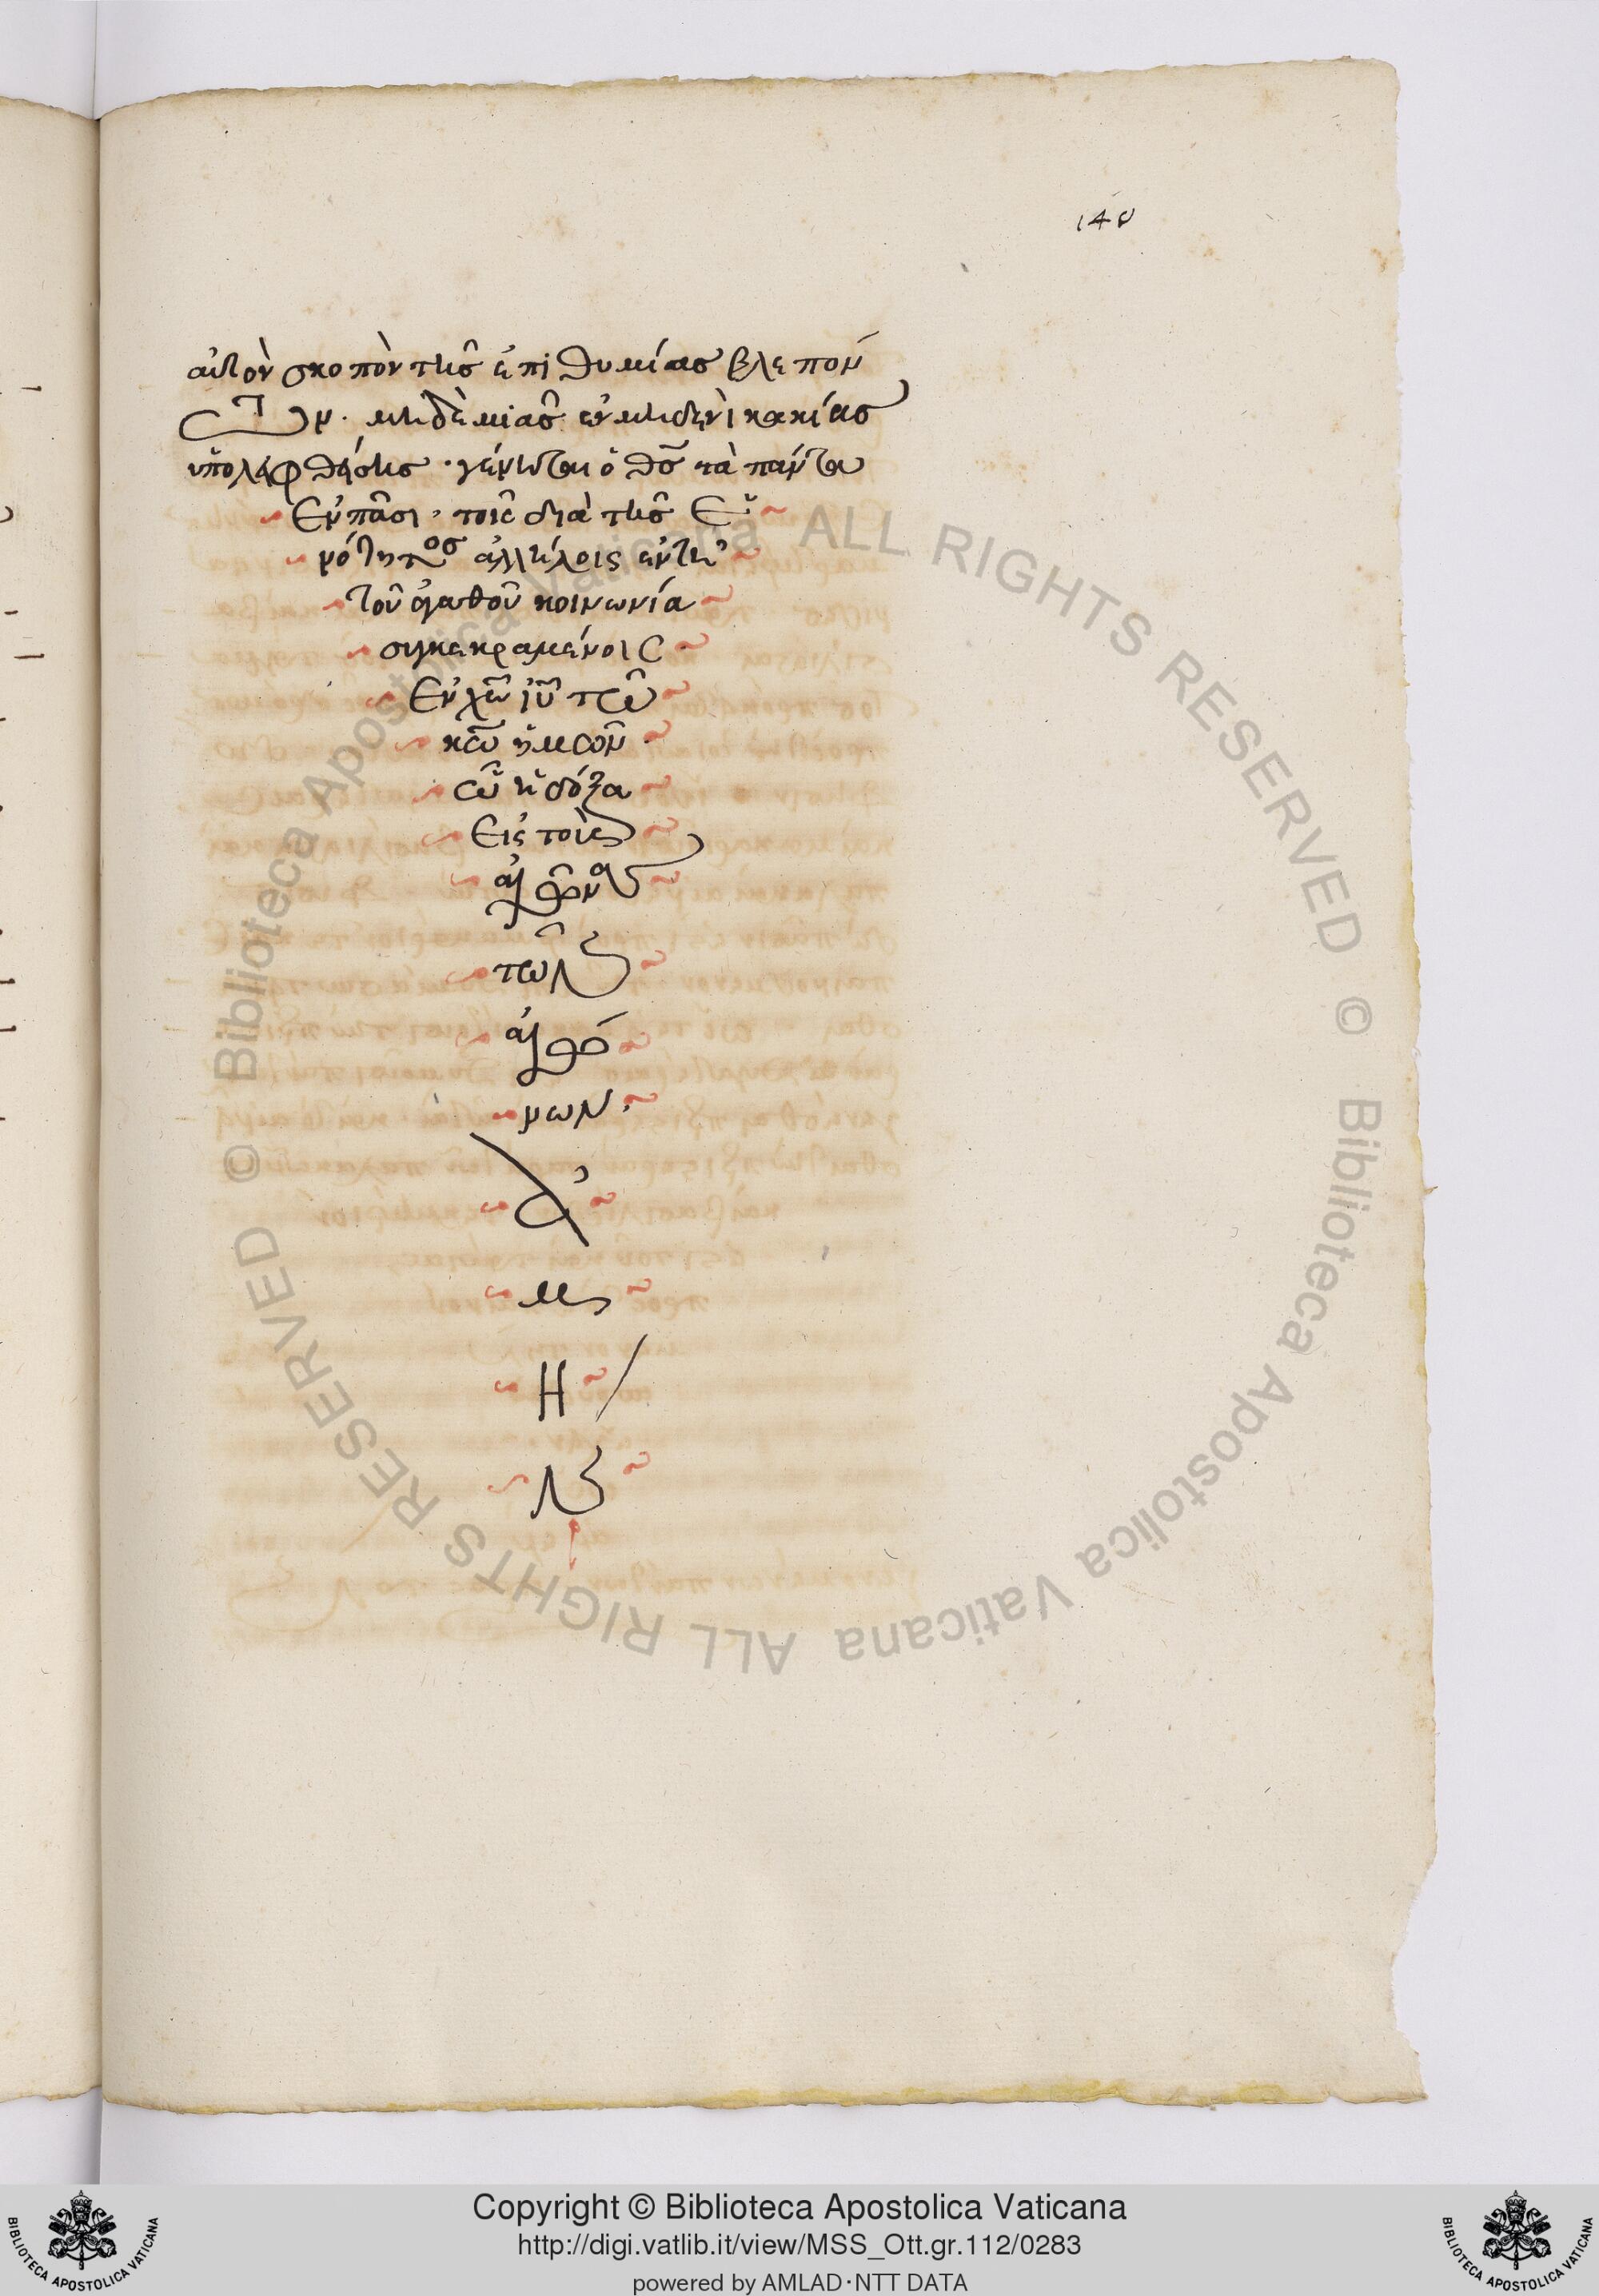 148
αὐτὸν σκοπὸν τῆς ἐπιθυμίας βλεπόν
των. μηδὲ μιᾶς ἐν μηδενὶ κακίας
ὑπολειφθείσης · γένηται ὁ θσ τὰ πάντα
Εν πᾶσι, τοῖς διὰ τῆς Ε
νότητος ἀλλήλοις ἐν τῆ
τοῦ ἀγαθοῦ κοινωνία
συγκεκραμένοις
Εν χω ιυ τῶ
κω ἡμῶν.
ὧ ἡ δόξα
Εἰς τοὺς
αἰῶνας
τῶν
αἰώ
νων.
Ἀ
μ
Η
Ν
Copyright © Biblioteca Apostolica Vaticana
http://digi.vatlib.it/view/MSS_Ott.gr.112/0283
powered by AMLAD·NTT DATA
© Biblioteca Apostolica Vaticana ALL RIGHTS RESERVED © Biblioteca Apostolica Vaticana ALL RIGHTS RESERVED
BIBLIOTECA APOSTOLICA VATICANA
BIBLIOTECA APOSTOLICA VATICANA